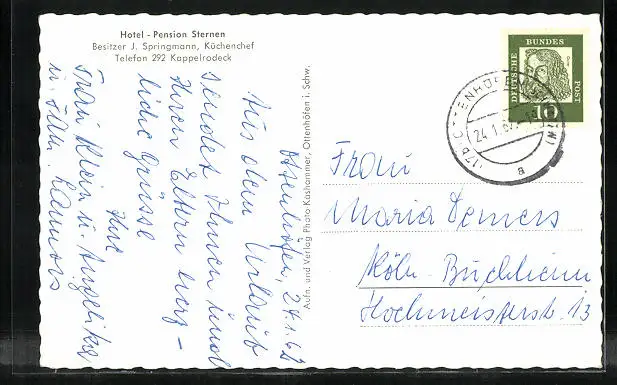 Hotel - Pension Sternen
Besitzer J. Springmann, Küchenchef
Telefon 292 Kappelrodeck
Ottenhöfen, 24.1.62
Aus dem Urlaub
sendet Ihnen und
Ihren Eltern
liche Grüsse
Ihre
Frau Klein u. Angelika
u. Fam.
Aufn. und Verlag Photo Kashammer, Ottenhöfen i. Schw.
DEUTSCHE BUNDES POST
10
24.1.62
a
Frau
Maria Demers
Köln-Buchheim
Hochmeisterstr. 13